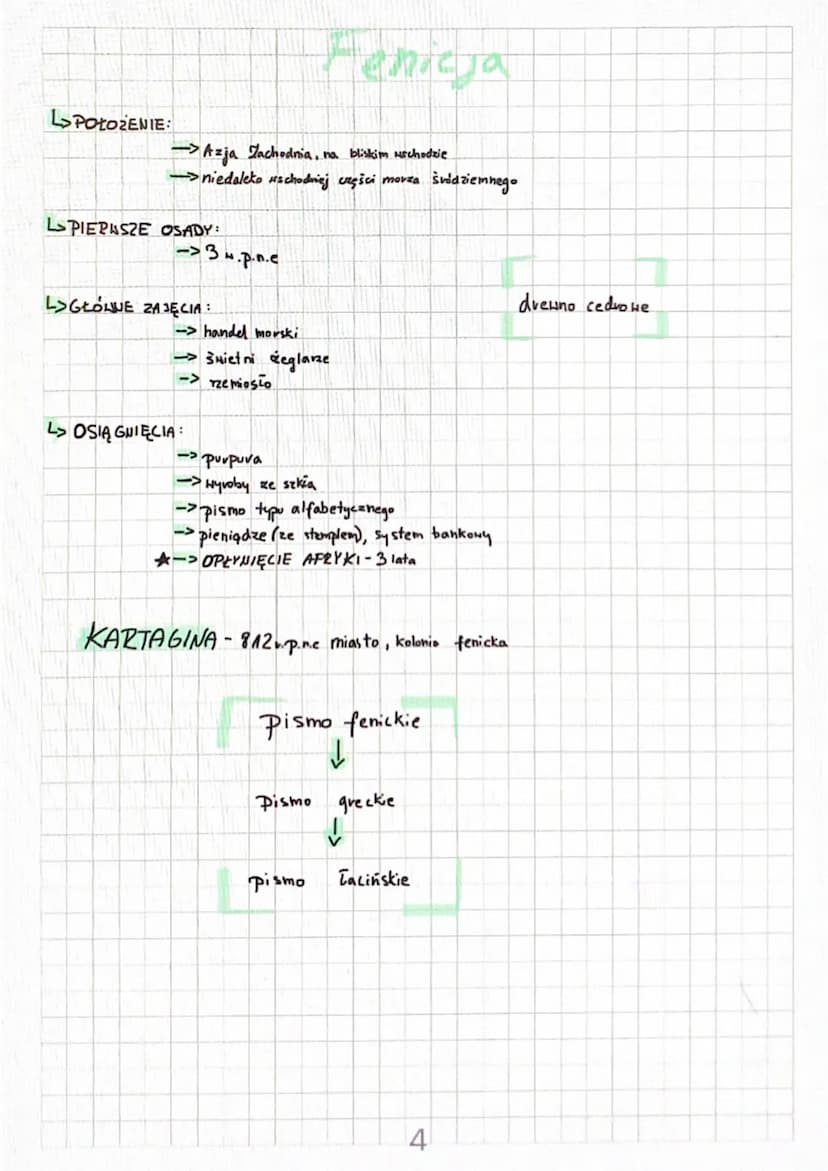 Fenicja
↳ POŁOŻENIE:
→ Azja Zachodnia, na bliskim wschodzie
→ niedaleko wschodniej części morza śródziemnego
↳ PIERWSZE OSADY:
→ 3 w.p.n.e
↳ GŁÓWNE ZAJĘCIA:
drewno cedrowe
→ handel morski
→ świetni żeglarze
→ rzemiosło
↳ OSIĄGNIĘCIA:
→ purpura
→ wyroby ze szkła
→ pismo typu alfabetycznego
→ pieniądze (ze stemplem), system bankowy
★→ OPŁYNIĘCIE AFRYKI - 3 lata
KARTAGINA - 812 w.p.n.e miasto, kolonia fenicka
pismo fenickie
↓
pismo greckie
↓
pismo łacińskie
4